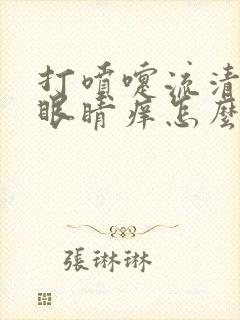 打噴嚏流清
眼睛痒怎麼
張琳琳